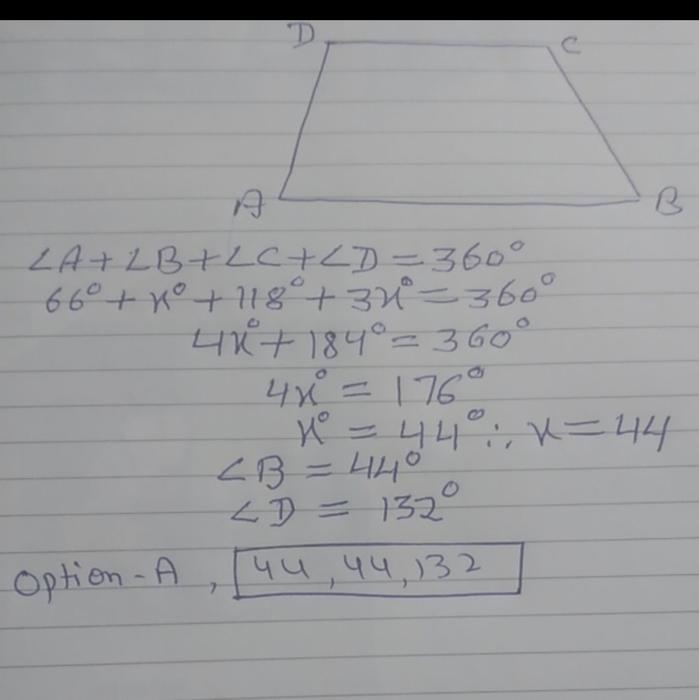 D C
A B
∠A+∠B+∠C+∠D=360°
66°+x°+118°+3x°=360°
4x°+184°=360°
4x°=176°
x°=44°∴x=44
∠B=44°
∠D=132°
Option-A, 44,44,132